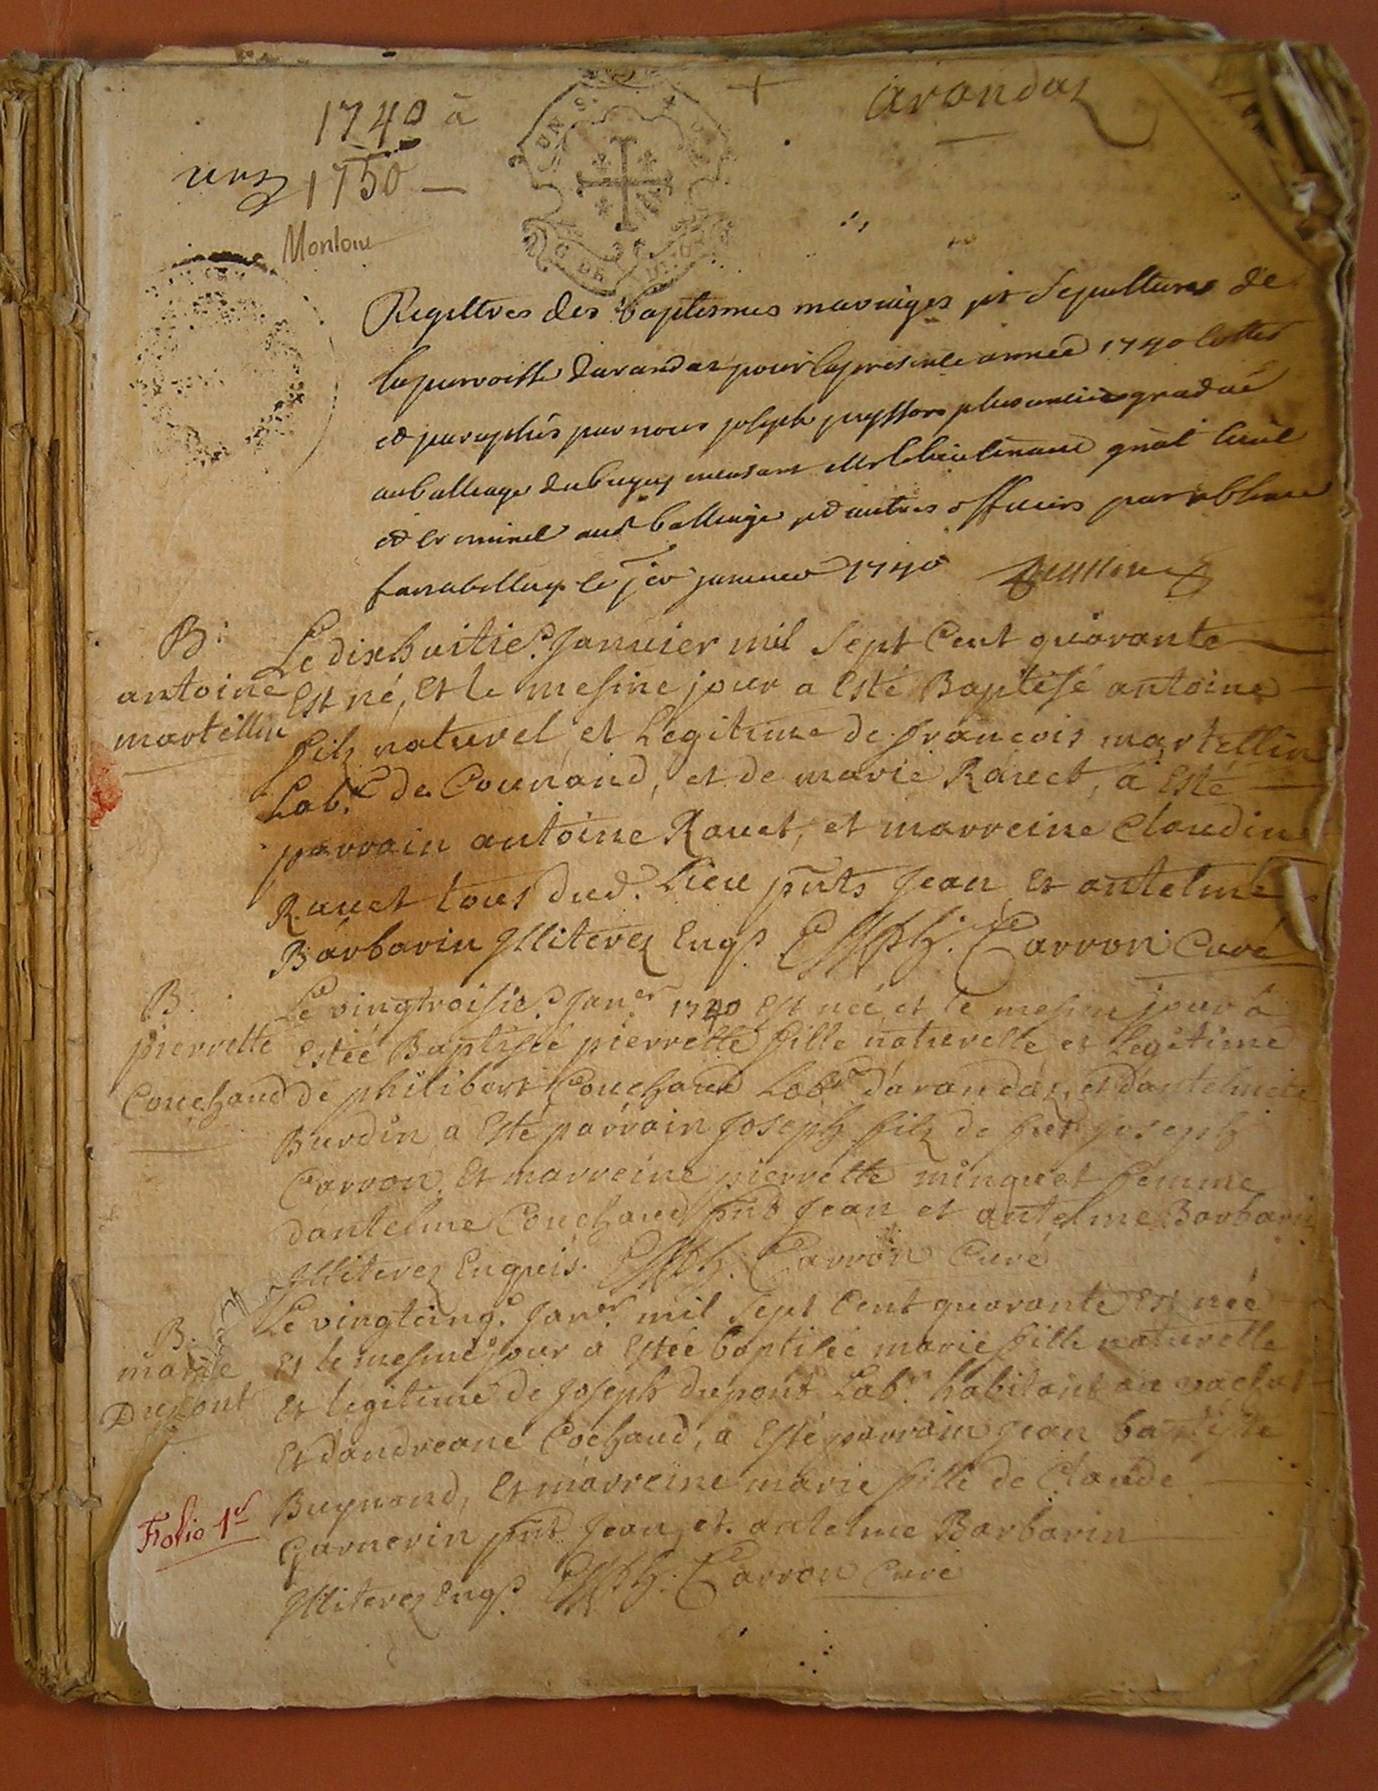 1740 à
1750
arandas
Montou
Registres des baptesmes mariages et Sepultures de
la parroisse darandas pour la presente année 1740 cottés
et paraphés par nous joseph plus ancien gradué
au balliage du bugey Mr le lieutenant gñal civil
et criminel aud balliage et autres officiers par absence
fait a belley le jer janvier 1740
B:
antoine
martellin
Le dixhuitie. Janvier mil Sept Cent quarante
Est né, Et le mesme jour a Esté Baptisé antoine
filz naturel et Legitime de françois martellin
Labr. de Counand, et de marie Ravet, a Esté
parrain antoine Ravet, et marreine Claudine
Ravet tous dud. Lieu pñts Jean Et antelme
Barbarin Illiterez Enqs. Carron Curé
B.
pierrette
Couchaud
Le vingtroisie. Janer. 1740 Est née et le mesme jour a
Estéé Baptiséé pierrette fille naturelle et Legitime
de philibert Couchaud Labr. darandas, et dantelmete
Burdin a Esté parrain Joseph filz de feu Joseph
Carron, Et marreine pierrette minquet femme
dantelme Couchaud pñts Jean et antelme Barbarin
Illiterez Enqueis. Carron Curé
B.
marie
Dupont
Le vingtcinqe. Janer. mil Sept Cent quarante Est néé
Et le mesme jour a Estéé baptiséé marie fille naturelle
Et legitime de Joseph dupont Labr. habitant
Et dandreane Cochaud, a Esté parrain Jean baptiste
Buynand, Et marreine marie fille de Claude
Garnerin pñts Jean et antelme Barbarin
Illiterez Enqs. Carron Curé
Folio 1er